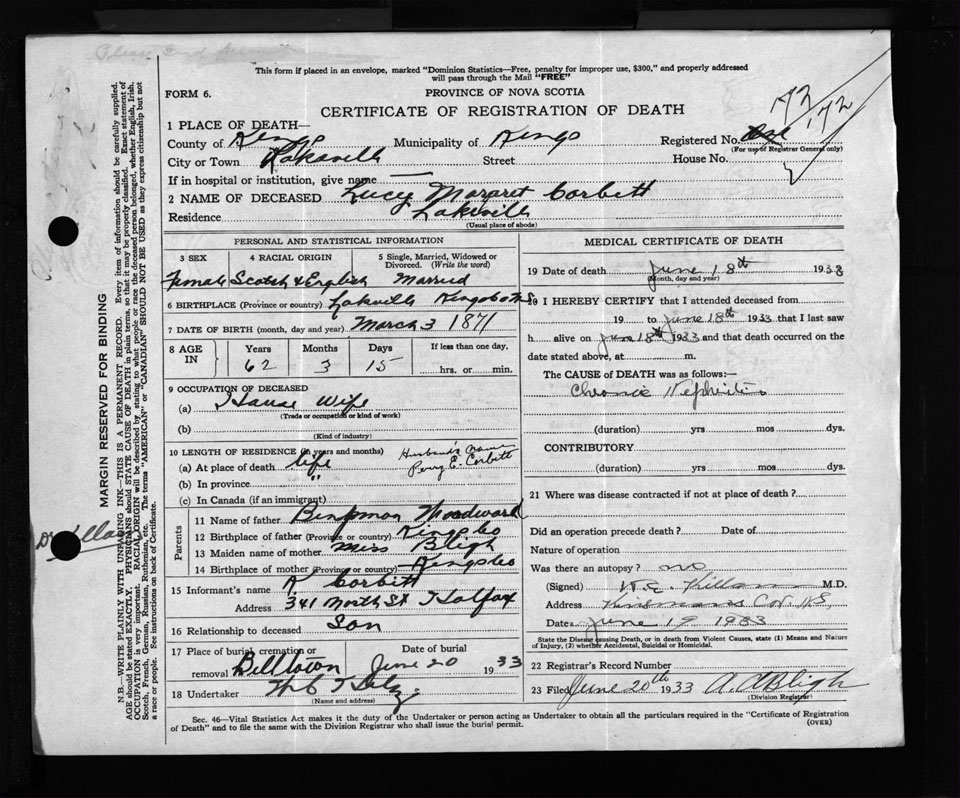 This form if placed in an envelope, marked "Dominion Statistics—Free, penalty for improper use, $300," and properly addressed
will pass through the Mail "FREE"
FORM 6.
PROVINCE OF NOVA SCOTIA
CERTIFICATE OF REGISTRATION OF DEATH
172
172
1 PLACE OF DEATH—
County of Kings Municipality of Kings Registered No.
(For use of Registrar General only)
City or Town Lakeville Street House No.
If in hospital or institution, give name —
2 NAME OF DECEASED Lucy Margaret Corbett
Residence Lakeville
(Usual place of abode)
PERSONAL AND STATISTICAL INFORMATION
3 SEX 4 RACIAL ORIGIN 5 Single, Married, Widowed or Divorced. (Write the word)
Female Scotch & English Married
6 BIRTHPLACE (Province or country) Lakeville Kings Co N.S.
7 DATE OF BIRTH (month, day and year) March 3 1871
8 AGE IN Years Months Days If less than one day,
62 3 15 hrs. or min.
9 OCCUPATION OF DECEASED
(a) House Wife
(Trade or occupation or kind of work)
(b)
(Kind of industry)
10 LENGTH OF RESIDENCE (in years and months) Husband's Name
(a) At place of death life Percy E. Corbett
(b) In province "
(c) In Canada (if an immigrant)
Parents
11 Name of father Benjamon Woodward
12 Birthplace of father (Province or country) Kings Co
13 Maiden name of mother Miss Bligh
14 Birthplace of mother (Province or country) Kings Co
15 Informant's name R Corbett
Address 341 North St Halfax
16 Relationship to deceased Son
17 Place of burial, cremation or removal Billtown Date of burial June 20 1933
18 Undertaker
(Name and address)
MEDICAL CERTIFICATE OF DEATH
19 Date of death June 18th 1933
(Month, day and year)
20 I HEREBY CERTIFY that I attended deceased from
19 to June 18th 1933 that I last saw
h alive on June 18th 1933 and that death occurred on the
date stated above, at m.
The CAUSE of DEATH was as follows:—
Chronic Nephritis
(duration) yrs mos dys.
CONTRIBUTORY
(duration) yrs mos dys.
21 Where was disease contracted if not at place of death?
Did an operation precede death? Date of
Nature of operation
Was there an autopsy? no
(Signed) Killam M.D.
Address Kinsmans Cor. N.S.
Date June 19 1933
State the Disease causing Death, or in death from Violent Causes, state (1) Means and Nature
of Injury, (2) whether Accidental, Suicidal or Homicidal.
22 Registrar's Record Number
23 Filed June 20th 1933 A. A. Bligh
(Division Registrar)
Sec. 46—Vital Statistics Act makes it the duty of the Undertaker or person acting as Undertaker to obtain all the particulars required in the "Certificate of Registration
of Death" and to file the same with the Division Registrar who shall issue the burial permit.
(OVER)
MARGIN RESERVED FOR BINDING
N.B.—WRITE PLAINLY WITH UNFADING INK—THIS IS A PERMANENT RECORD. Every item of information should be carefully supplied.
AGE should be stated EXACTLY. PHYSICIANS should STATE CAUSE OF DEATH in plain terms, so that it may be properly classified. Exact statement of
OCCUPATION is very important. RACIAL ORIGIN will be described by stating to what people or race the deceased person belonged, whether English, Irish,
Scotch, French, German, Russian, Ruthenian, etc. The terms "AMERICAN" or "CANADIAN" SHOULD NOT BE USED as they express citizenship but not
a race or people. See instructions on back of Certificate.